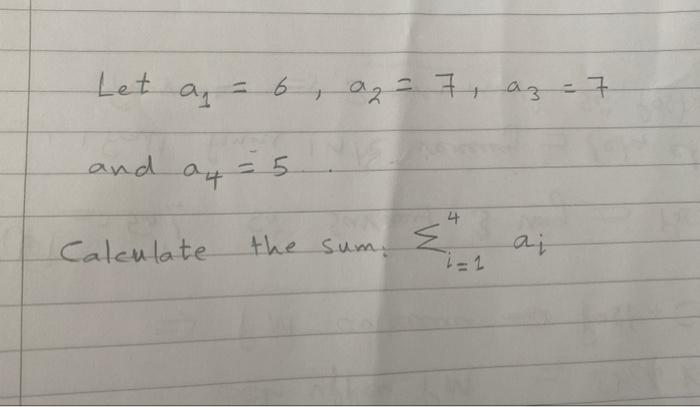 Let a₁ = 6, a₂ = 7, a₃ = 7
and a₄ = 5.
Calculate the sum: Σ⁴ᵢ₌₁ aᵢ